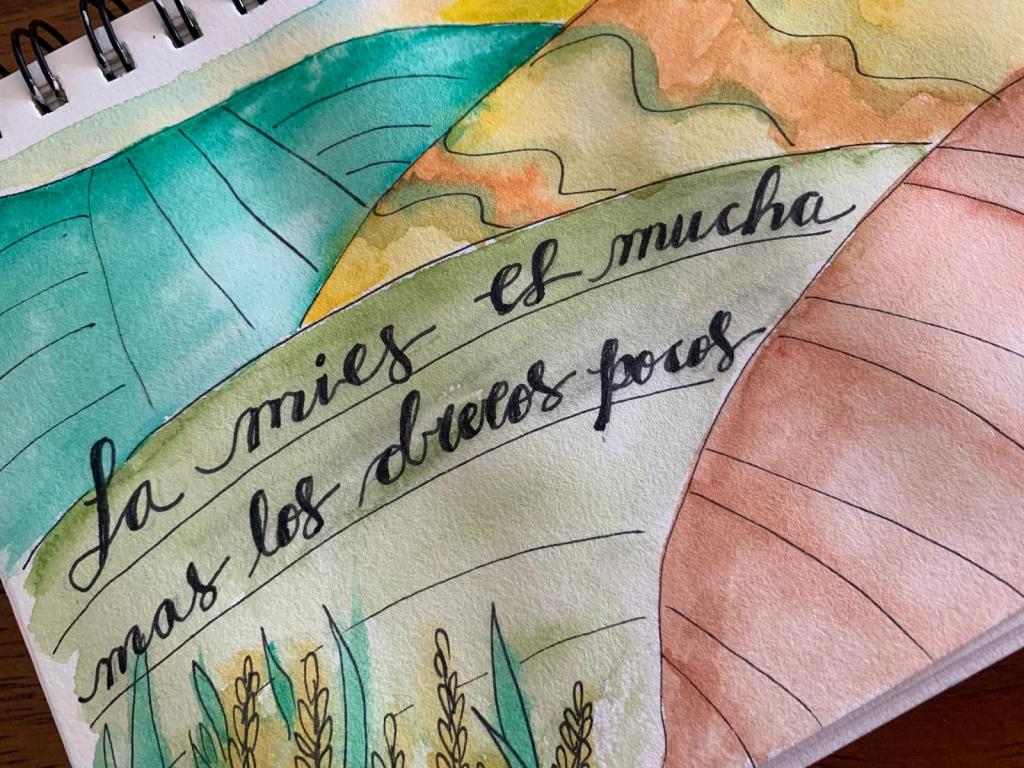 La mies es mucha
mas los obreros pocos